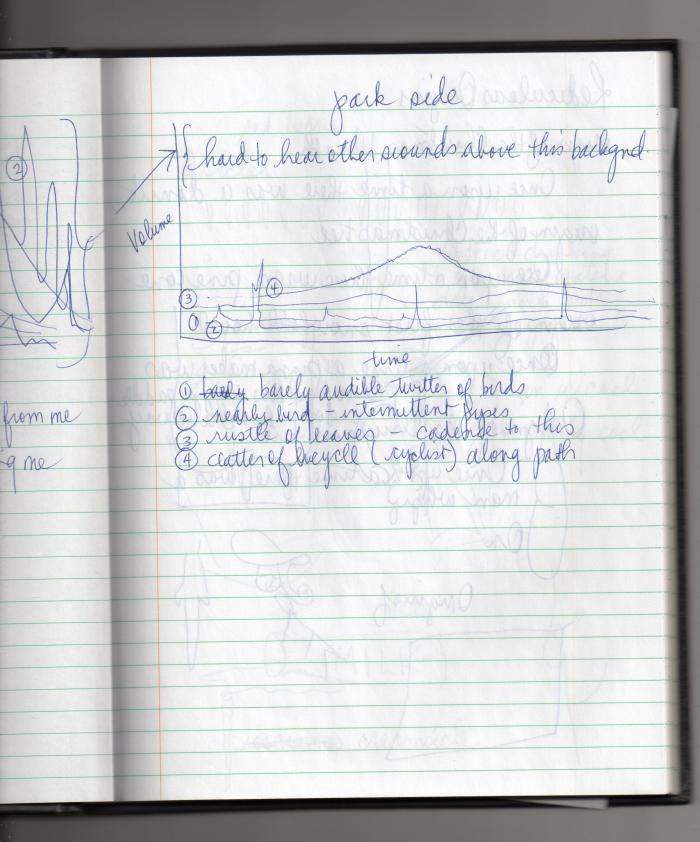 park side
hard to hear other sounds above this backgnd.
②
Volume
③
④
①
②
time
① barely barely audible twitter of birds
② nearby bird - intermittent
③ rustle of leaves - cadence to this
④ clatter of bicycle (cyclist) along path
from me
g me